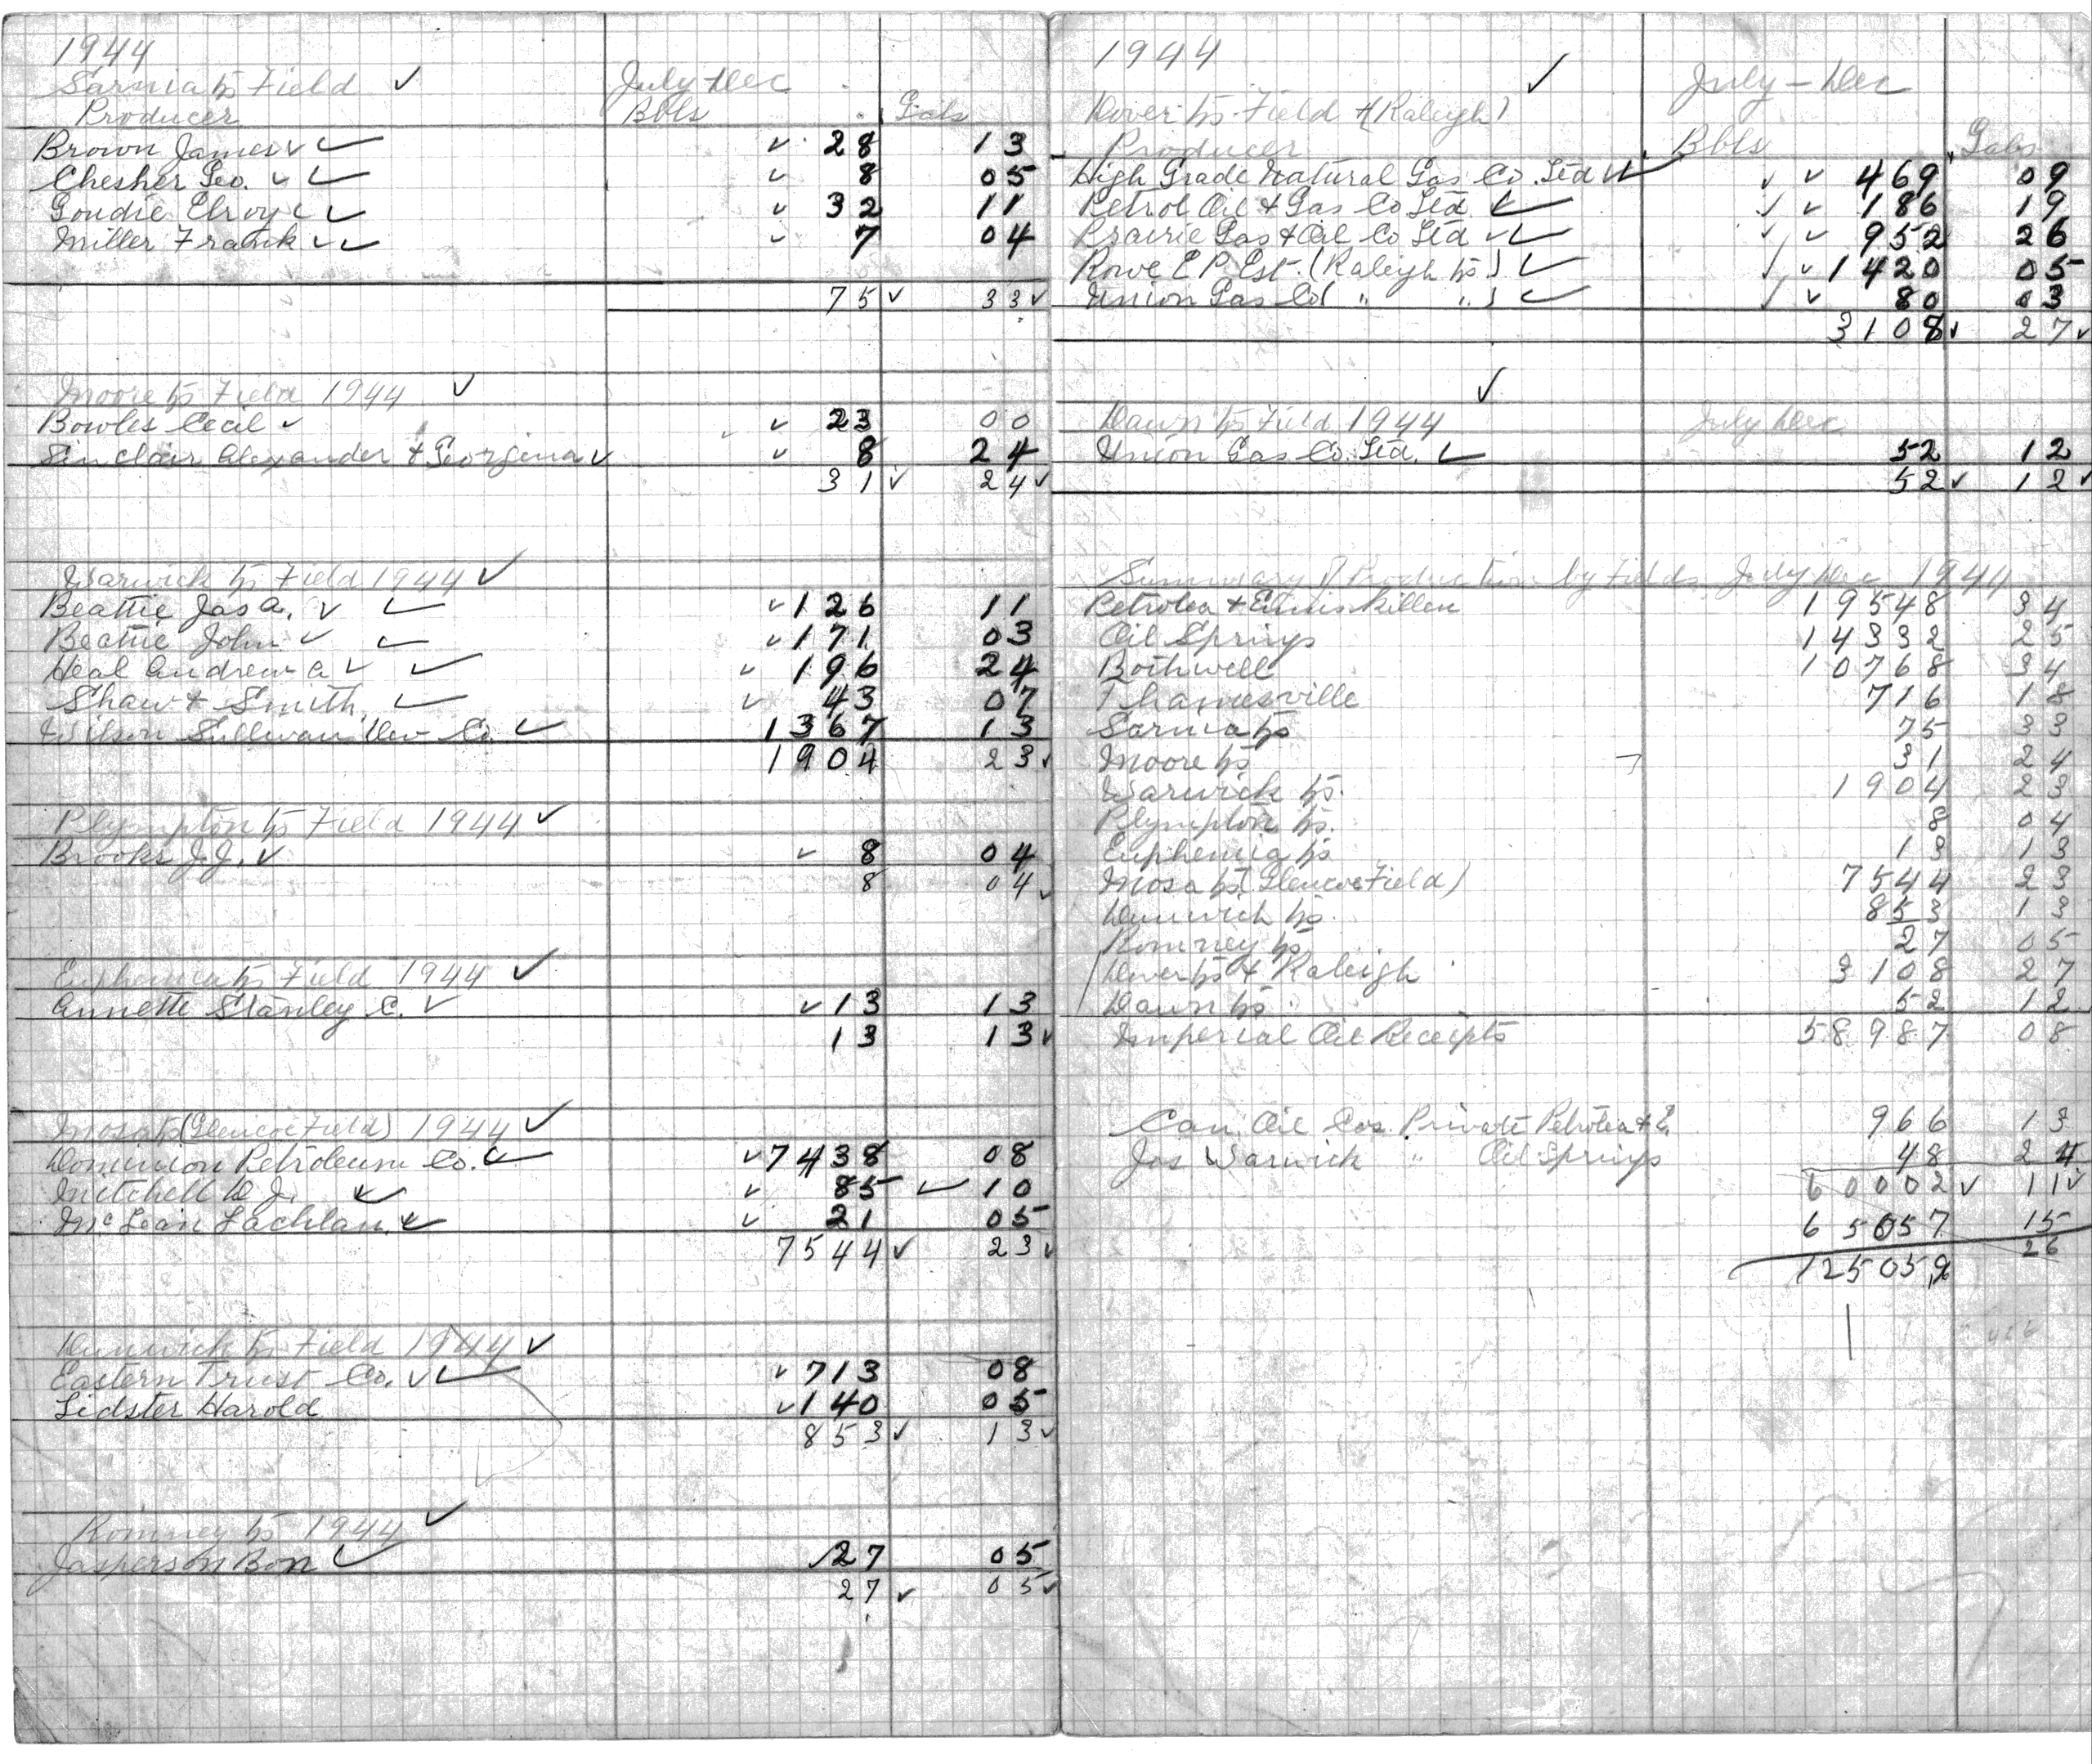 1944
Sarnia Tp Field ✓ July-Dec
Producer Bbls Gals
Brown James ✓ ✓ ✓ 28 13
Chesher Geo. ✓ ✓ ✓ 8 05
Goudie Elroy ✓ ✓ ✓ 32 11
Miller Frank ✓ ✓ ✓ 7 04
75 ✓ 33 ✓
Moore Tp Field 1944 ✓
Bowles Cecil ✓ ✓ 23 00
Sinclair Alexander & Georgina ✓ ✓ 8 24
31 ✓ 24 ✓
Warwick Tp Field 1944 ✓
Beattie Jas A. ✓ ✓ ✓ 126 11
Beattie John ✓ ✓ ✓ 171 03
Heal Andrew A ✓ ✓ ✓ 196 24
Shaw & Smith ✓ ✓ 43 07
Wilson Sullivan Dev Co. ✓ 1367 13
1904 23 ✓
Plympton Tp Field 1944 ✓
Brooks J.J. ✓ ✓ 8 04
8 04 ✓
Euphemia Tp Field 1944 ✓
Annette Stanley C. ✓ ✓ 13 13
13 13 ✓
Mosa Tp (Glencoe Field) 1944 ✓
Dominion Petroleum Co. ✓ ✓ 7438 08
Mitchell D J. ✓ ✓ 85 ✓ 10
McLean Lachlan ✓ ✓ 21 05
7544 ✓ 23 ✓
Dunwich Tp Field 1944 ✓
Eastern Trust Co. ✓ ✓ ✓ 713 08
Lidster Harold ✓ 140 05
853 ✓ 13 ✓
Romney Tp 1944 ✓
Jasperson Bon ✓ ✓ 27 05
27 ✓ 05 ✓
1944
✓ July - Dec
Dover Tp Field & (Raleigh)
Producer Bbls Gals
High Grade Natural Gas Co. Ltd ✓ ✓ ✓ 469 09
Petrol Oil & Gas Co Ltd ✓ ✓ ✓ 186 19
Prairie Gas & Oil Co Ltd ✓ ✓ ✓ ✓ 952 26
Rowe E P. Est. (Raleigh Tp) ✓ ✓ ✓ 1420 05
Union Gas Co ( " " ) ✓ ✓ ✓ 80 03
3108 ✓ 27 ✓
✓
Dawn Tp Field 1944 July Dec
Union Gas Co. Ltd. ✓ 52 12
52 ✓ 12 ✓
Summary of Production by Fields July Dec 1944
Petrolea & Enniskillen 19548 34
Oil Springs 14332 25
Bothwell 10768 34
Thamesville 716 18
Sarnia Tp 75 33
Moore Tp 31 24
Warwick Tp. 1904 23
Plympton Tp. 8 04
Euphemia Tp 13 13
Mosa Tp (Glencoe Field) 7544 23
Dunwich Tp. 853 13
Romney Tp. 27 05
Dover Tp & Raleigh 3108 27
Dawn Tp 52 12
Imperial Oil Receipts 58987 08
Can. Oil Cos. Private Petrolea & E. 966 13
Jas Warwick " Oil Springs 48 24
60002 ✓ 11 ✓
65057 15
125059 26